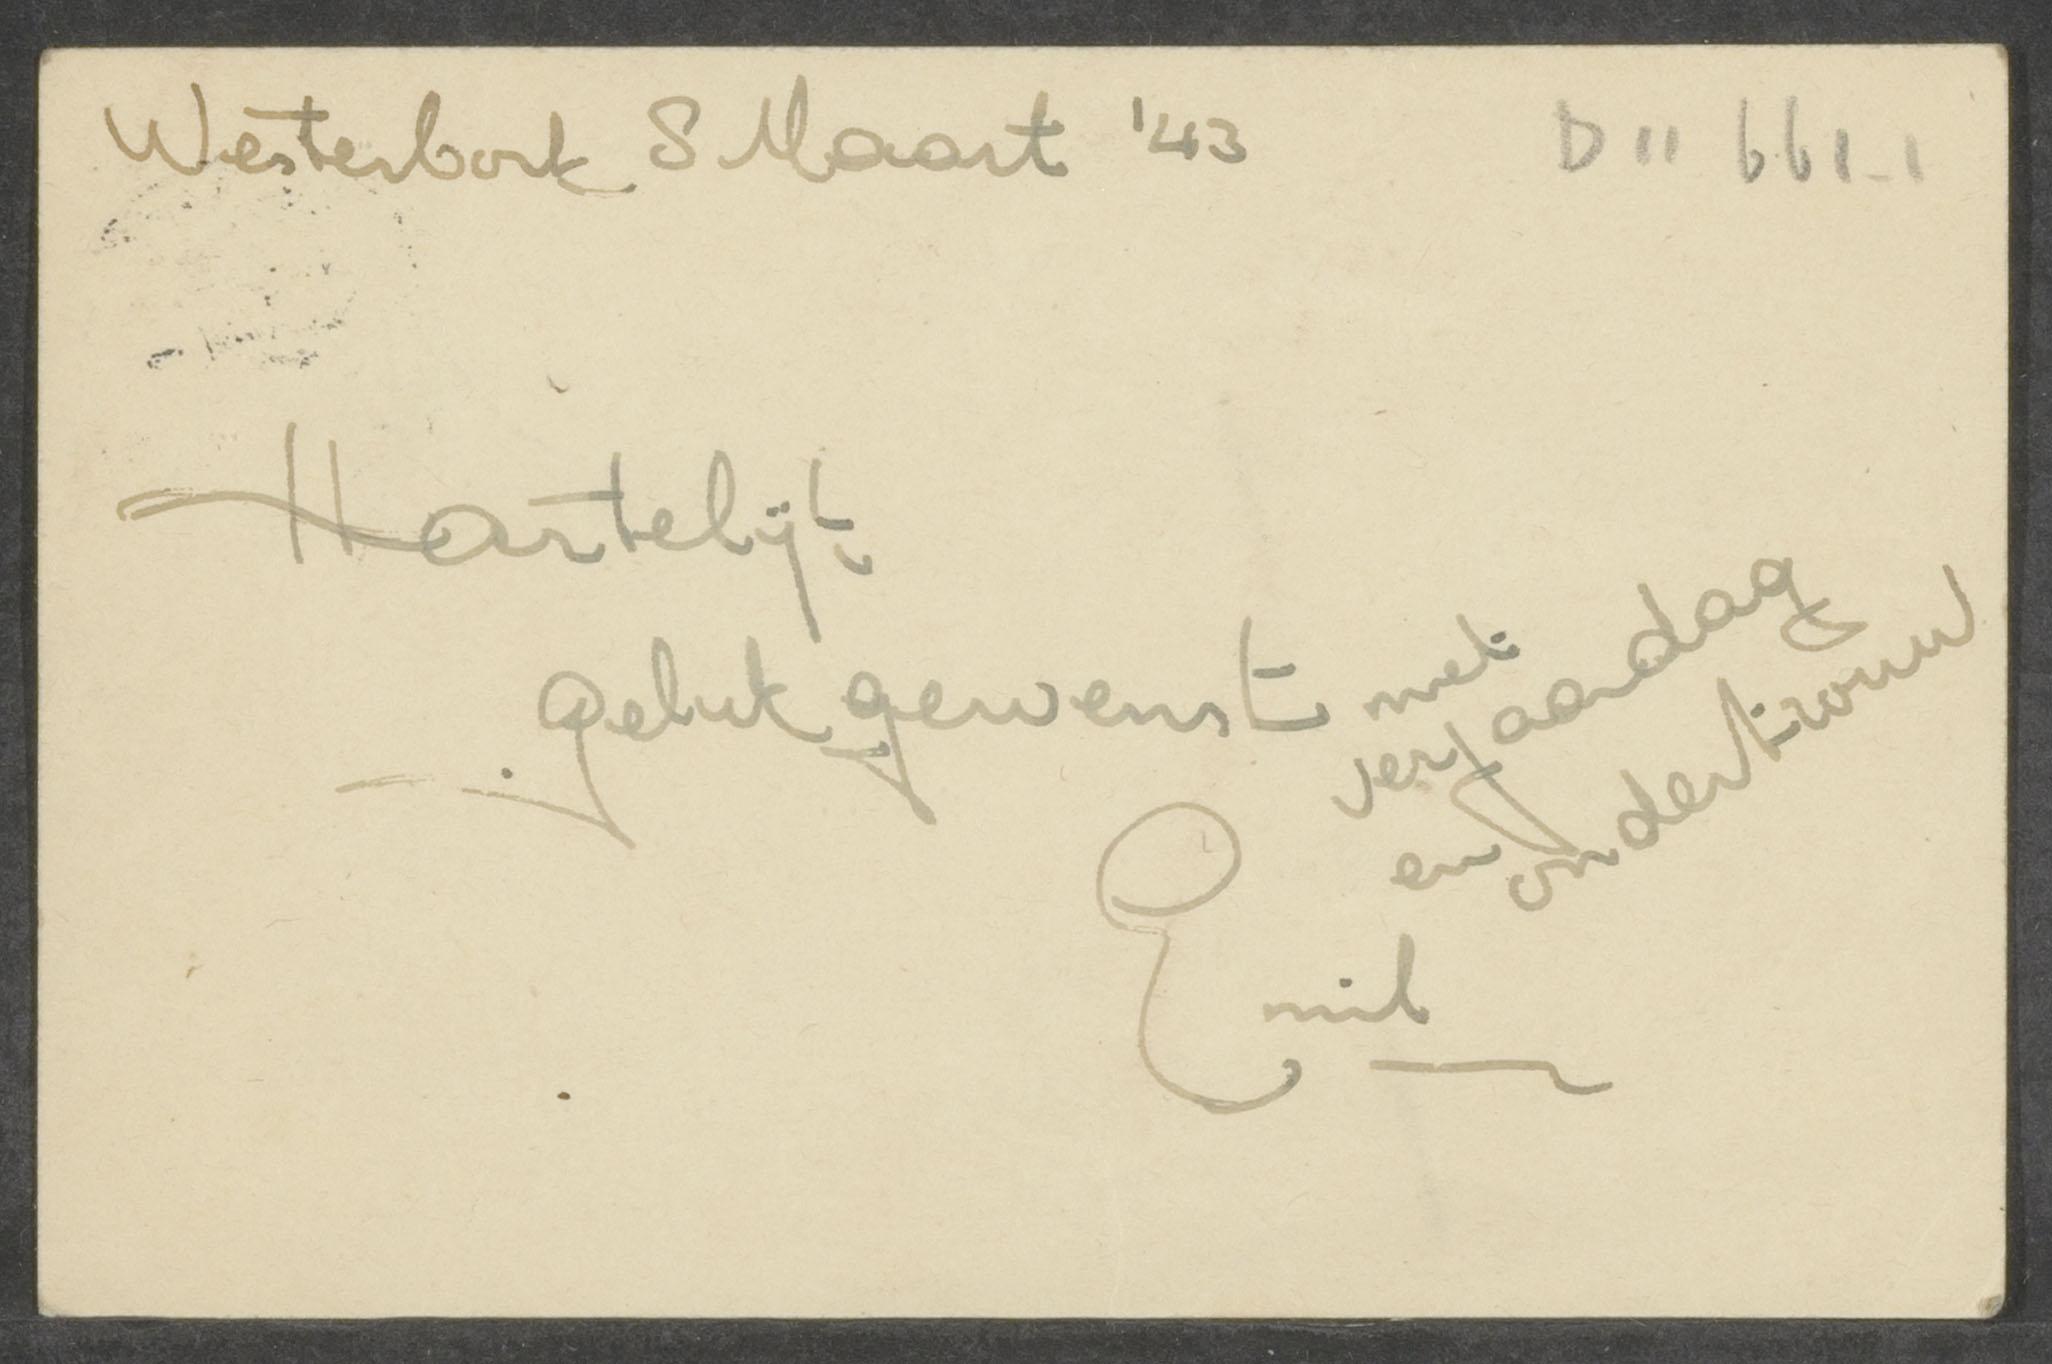 Westerbork 8 Maart '43
D 11 661-1
Hartelijk
gelukgewenst met
verjaardag
en ondertrouw
Emil